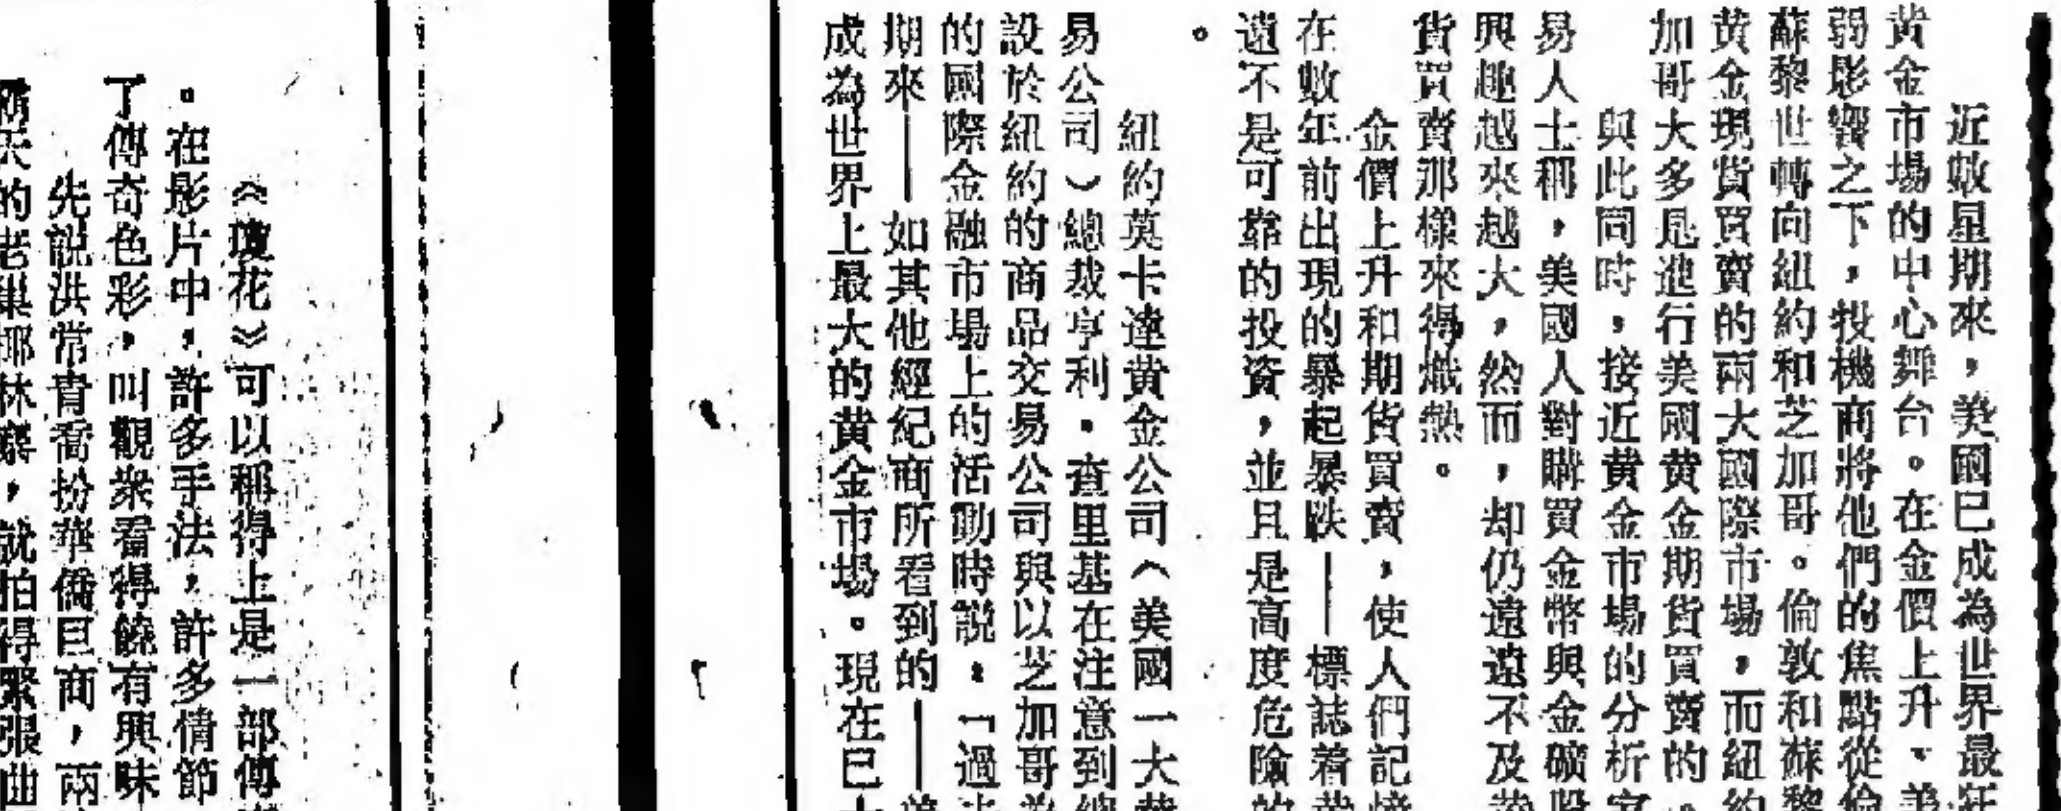 近數星期來，美國已成為世界最
黃金市場的中心舞台。在金價上升、美
弱影響之下，投機商將他們的焦點從倫
蘇黎世轉向紐約和芝加哥。倫敦和蘇黎
黃金現貨買賣的兩大國際市場，而紐約
加哥大多是進行美國黃金期貨買賣的。
與此同時，接近黃金市場的分析家
易人士稱，美國人對購買金幣與金礦股
興趣越來越大，然而，却仍遠遠不及黃
貨買賣那樣來得熾熱。
金價上升和期貨買賣，使人們記憶
在數年前出現的暴起暴跌——標誌着黃
遠不是可靠的投資，並且是高度危險的
。
紐約莫卡達黃金公司（美國一大黃
易公司）總裁亨利．查里基在注意到總
設於紐約的商品交易公司與以芝加哥為
的國際金融市場上的活動時説：「過去
期來——如其他經紀商所看到的——美
成為世界上最大的黃金市場。現在已
《瓊花》可以稱得上是一部傳
。在影片中，許多手法，許多情節
了傳奇色彩，叫觀衆看得饒有興味
先説洪常青喬扮華僑巨商，兩
天的老巢椰林寨，就拍得緊張曲